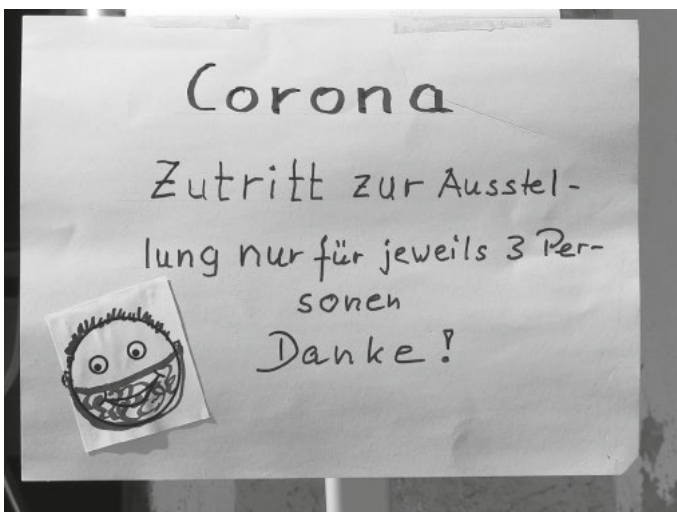 Corona
Zutritt zur Ausstel-
lung nur für jeweils 3 Per-
sonen
Danke!